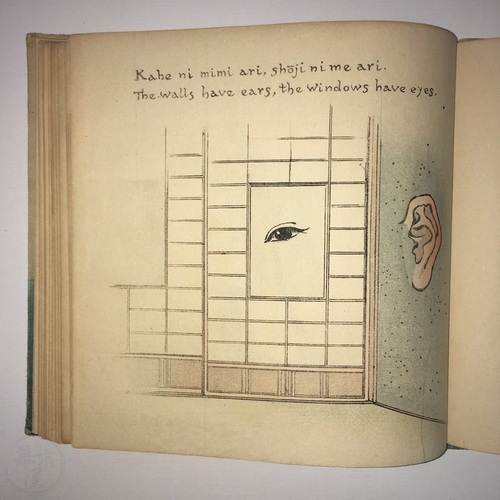 Kabe ni mimi ari, shōji ni me ari.
The walls have ears, the windows have eyes.